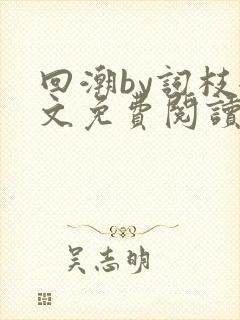 回潮by詞枝
文免費閱讀
吴志明